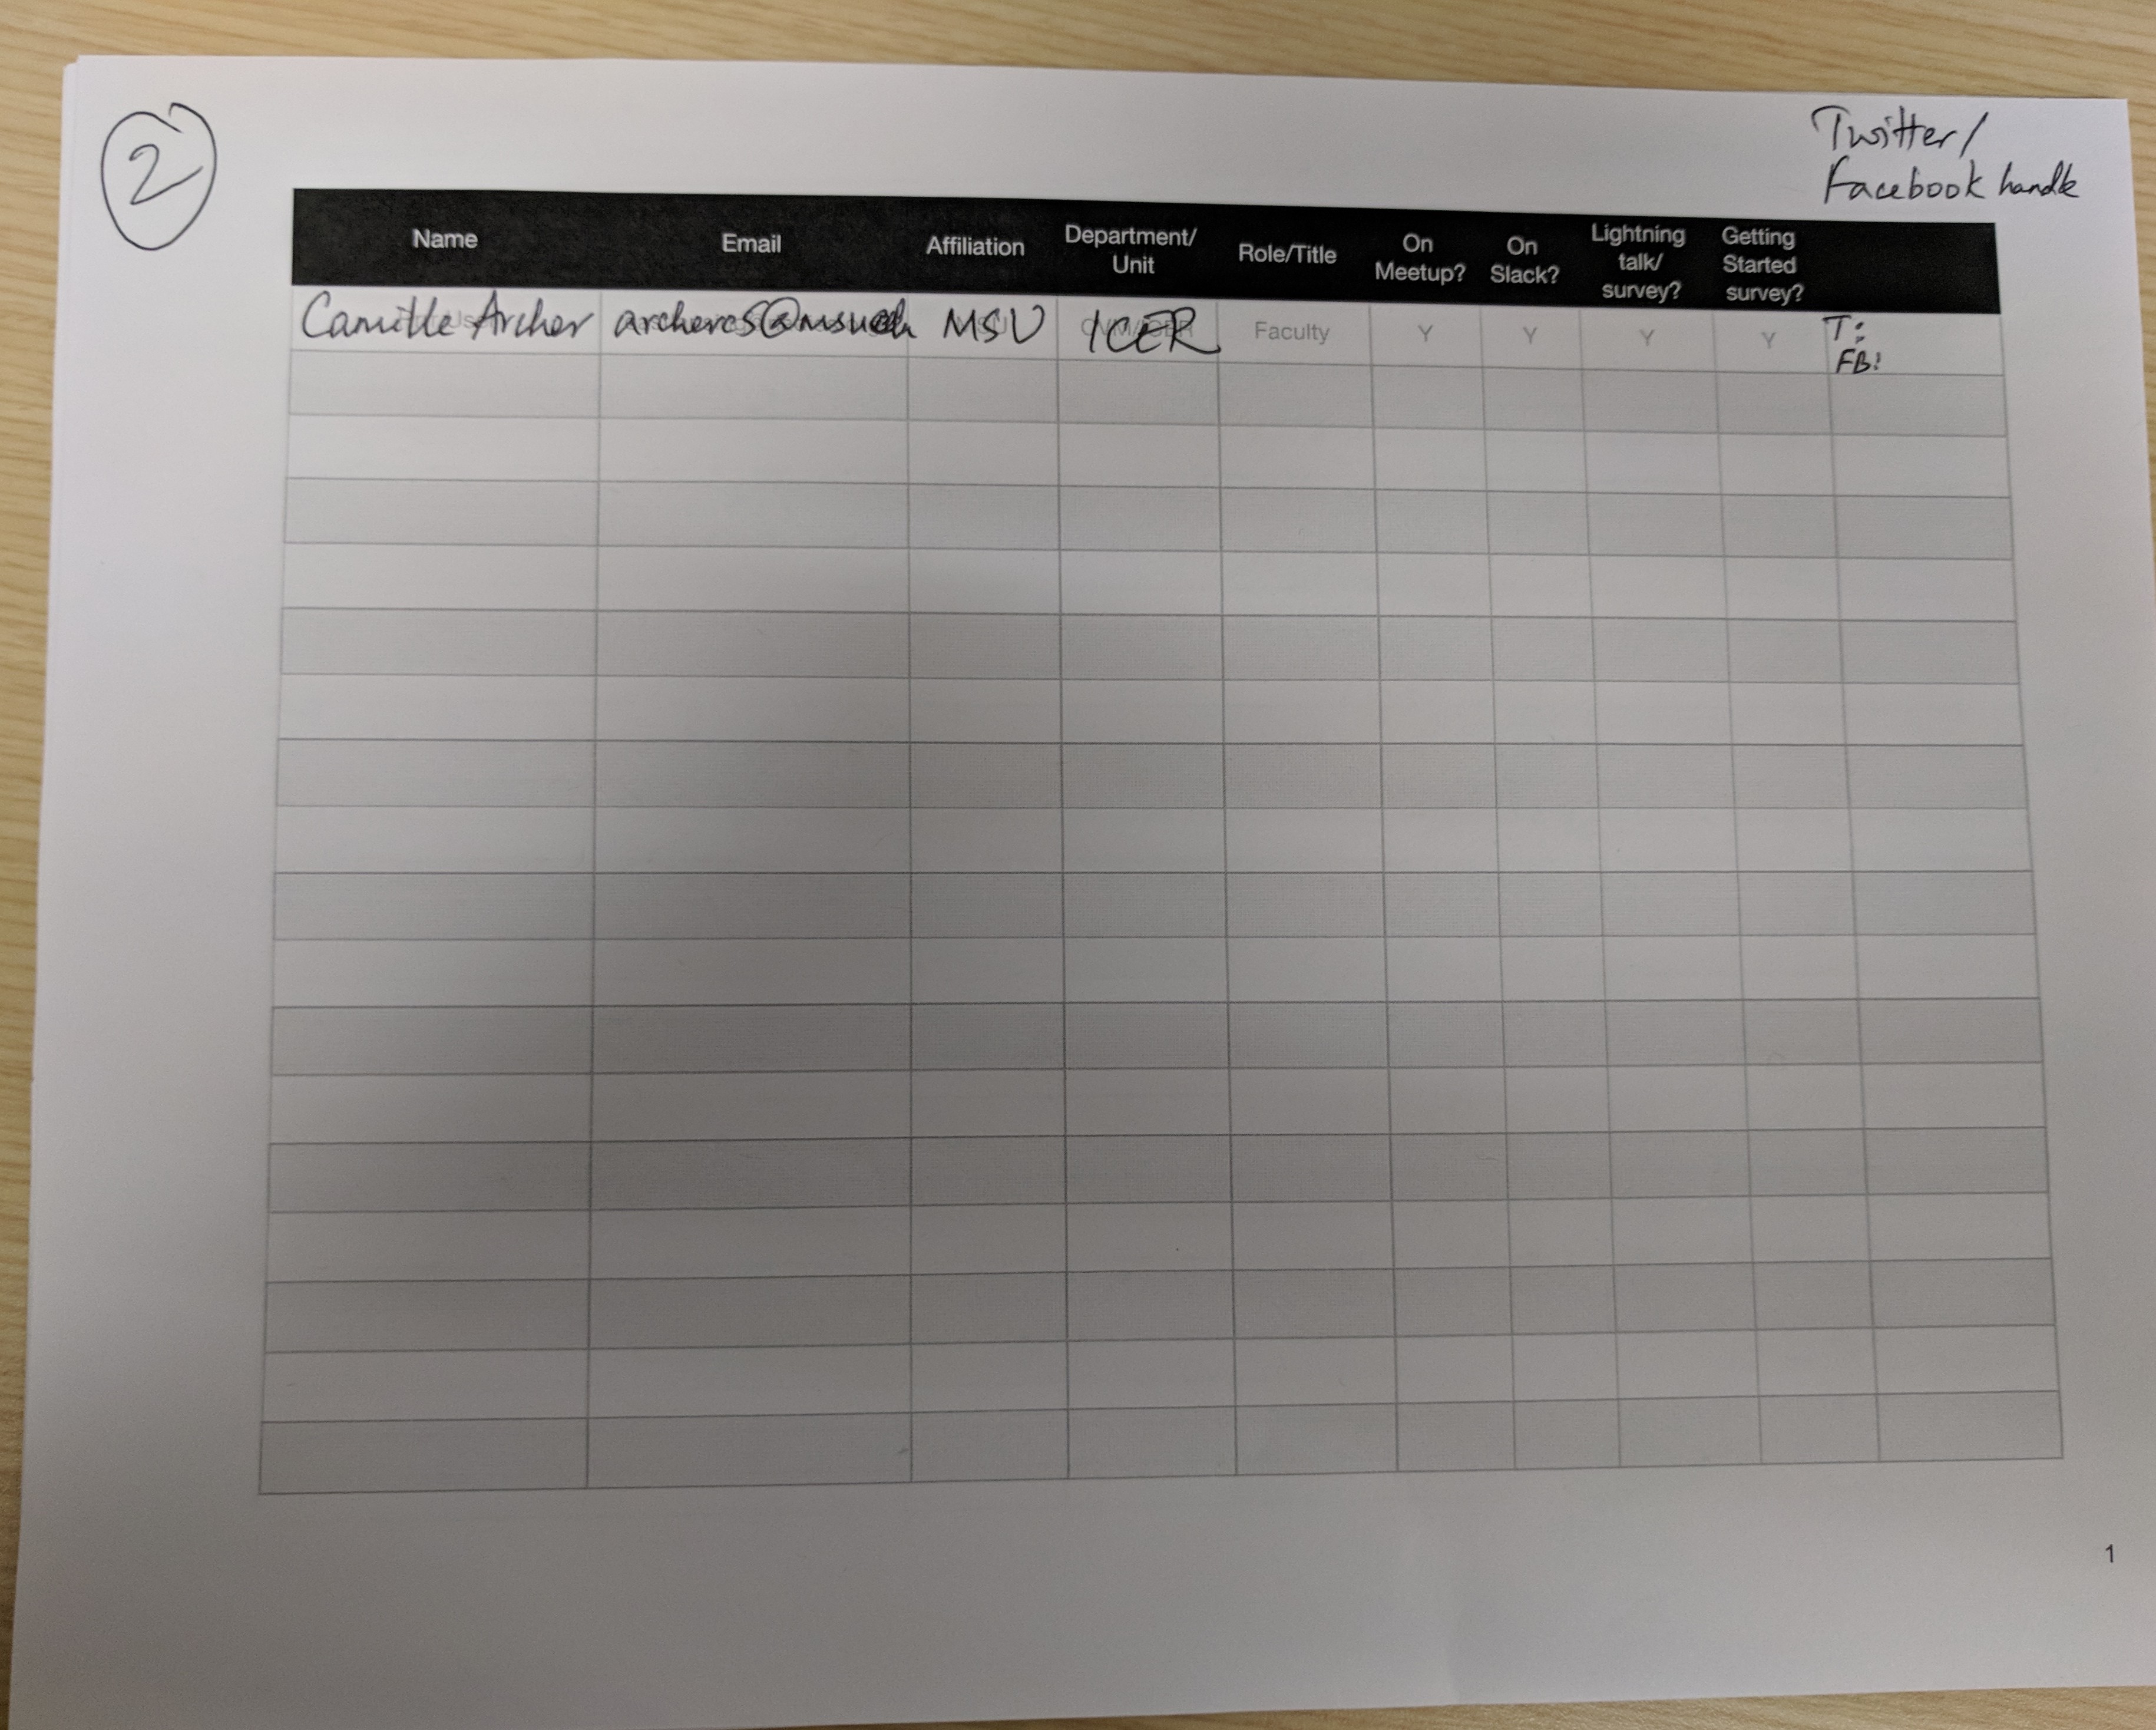 2
Twitter/
Facebook handle
Name Email Affiliation Department/ Unit Role/Title On Meetup? On Slack? Lightning talk/ survey? Getting Started survey?
Camille Archer MSU ICER Faculty Y Y Y Y T:
FB:
1